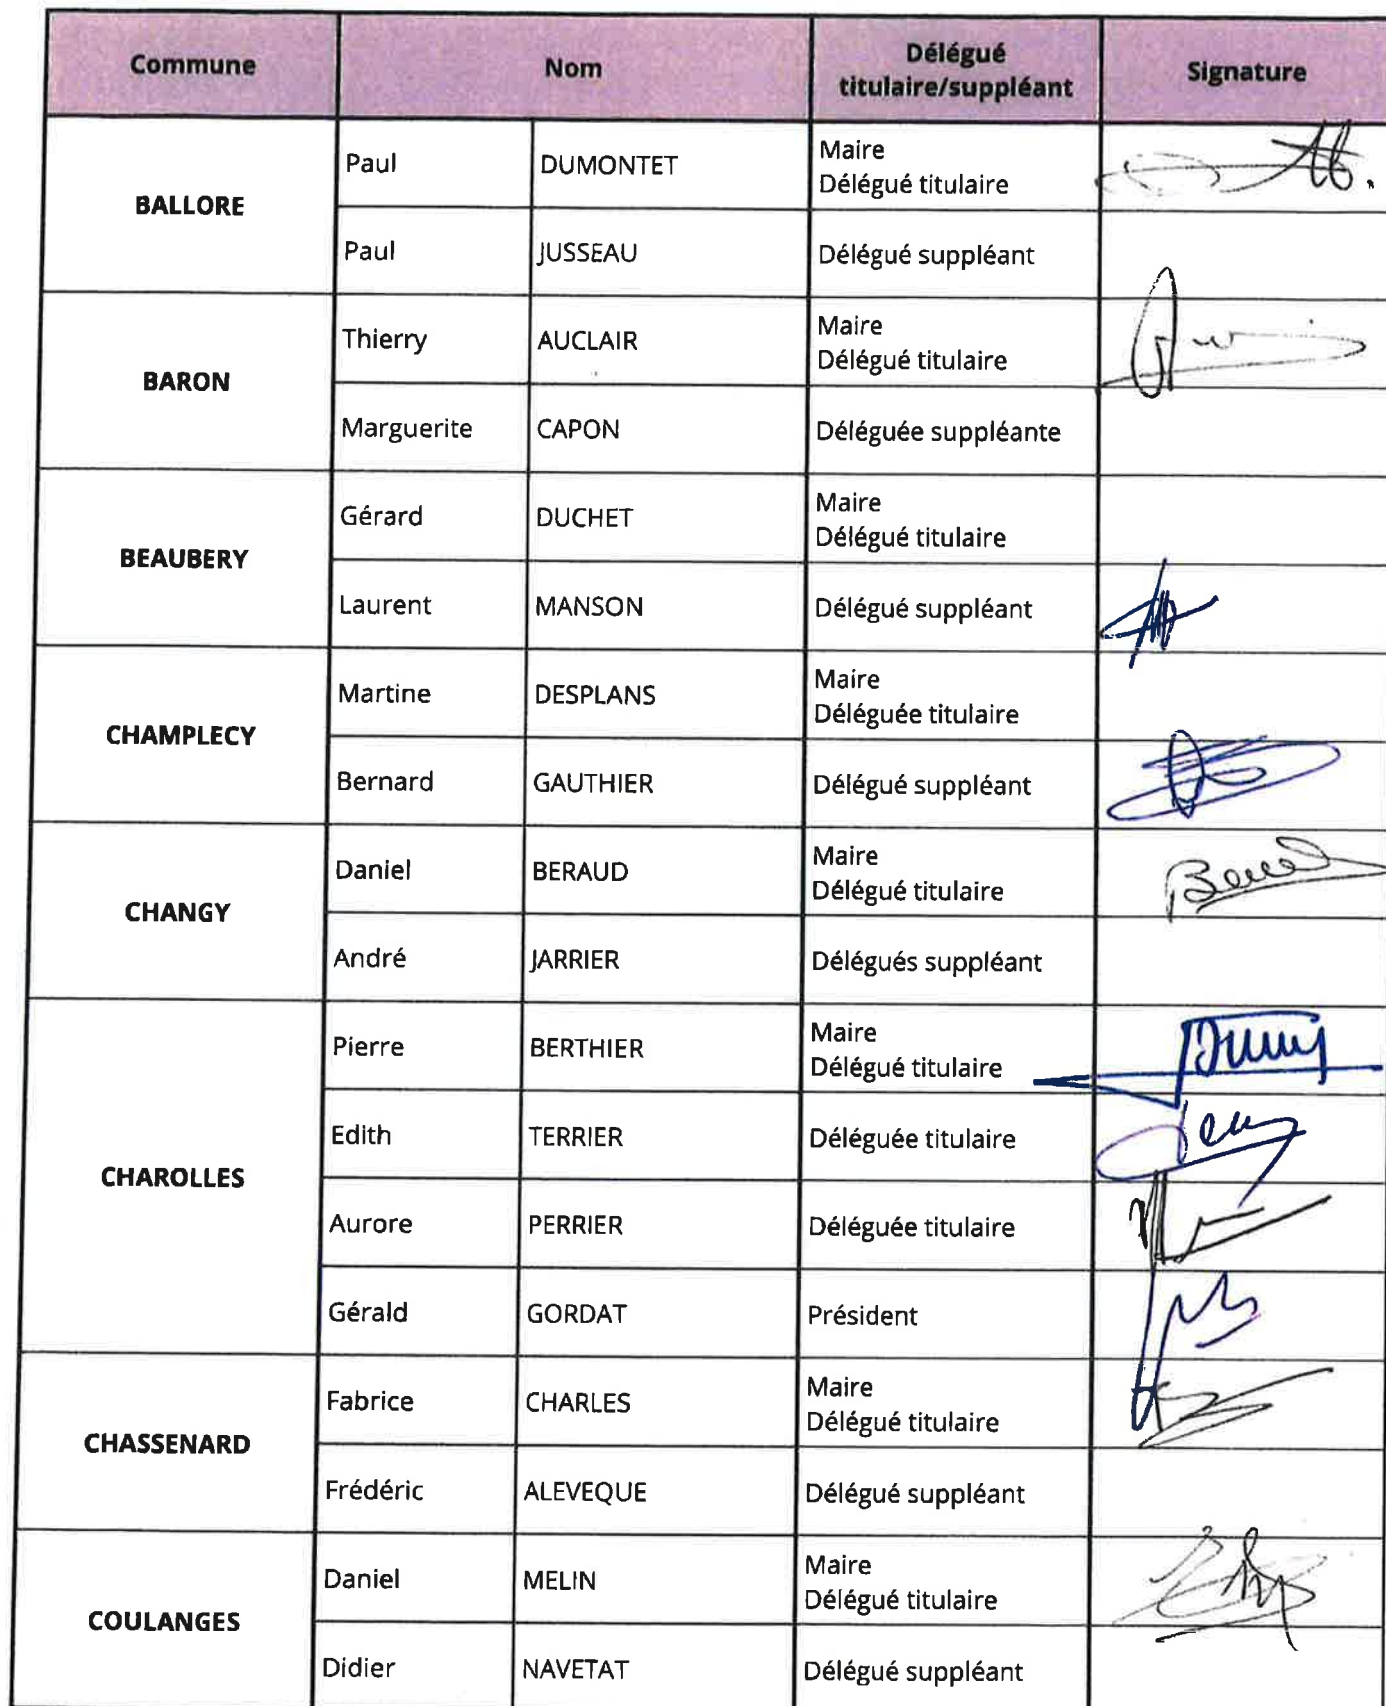 Commune
Nom
Délégué
titulaire/suppléant
Signature
BALLORE
Paul DUMONTET
Maire
Délégué titulaire
Paul JUSSEAU Délégué suppléant
BARON
Thierry AUCLAIR
Maire
Délégué titulaire
Marguerite CAPON Déléguée suppléante
BEAUBERY
Gérard DUCHET
Maire
Délégué titulaire
Laurent MANSON Délégué suppléant
CHAMPLECY
Martine DESPLANS
Maire
Déléguée titulaire
Bernard GAUTHIER Délégué suppléant
CHANGY
Daniel BERAUD
Maire
Délégué titulaire
André JARRIER Délégués suppléant
CHAROLLES
Pierre BERTHIER
Maire
Délégué titulaire
Edith TERRIER Déléguée titulaire
Aurore PERRIER Déléguée titulaire
Gérald GORDAT Président
CHASSENARD
Fabrice CHARLES
Maire
Délégué titulaire
Frédéric ALEVEQUE Délégué suppléant
COULANGES
Daniel MELIN
Maire
Délégué titulaire
Didier NAVETAT Délégué suppléant